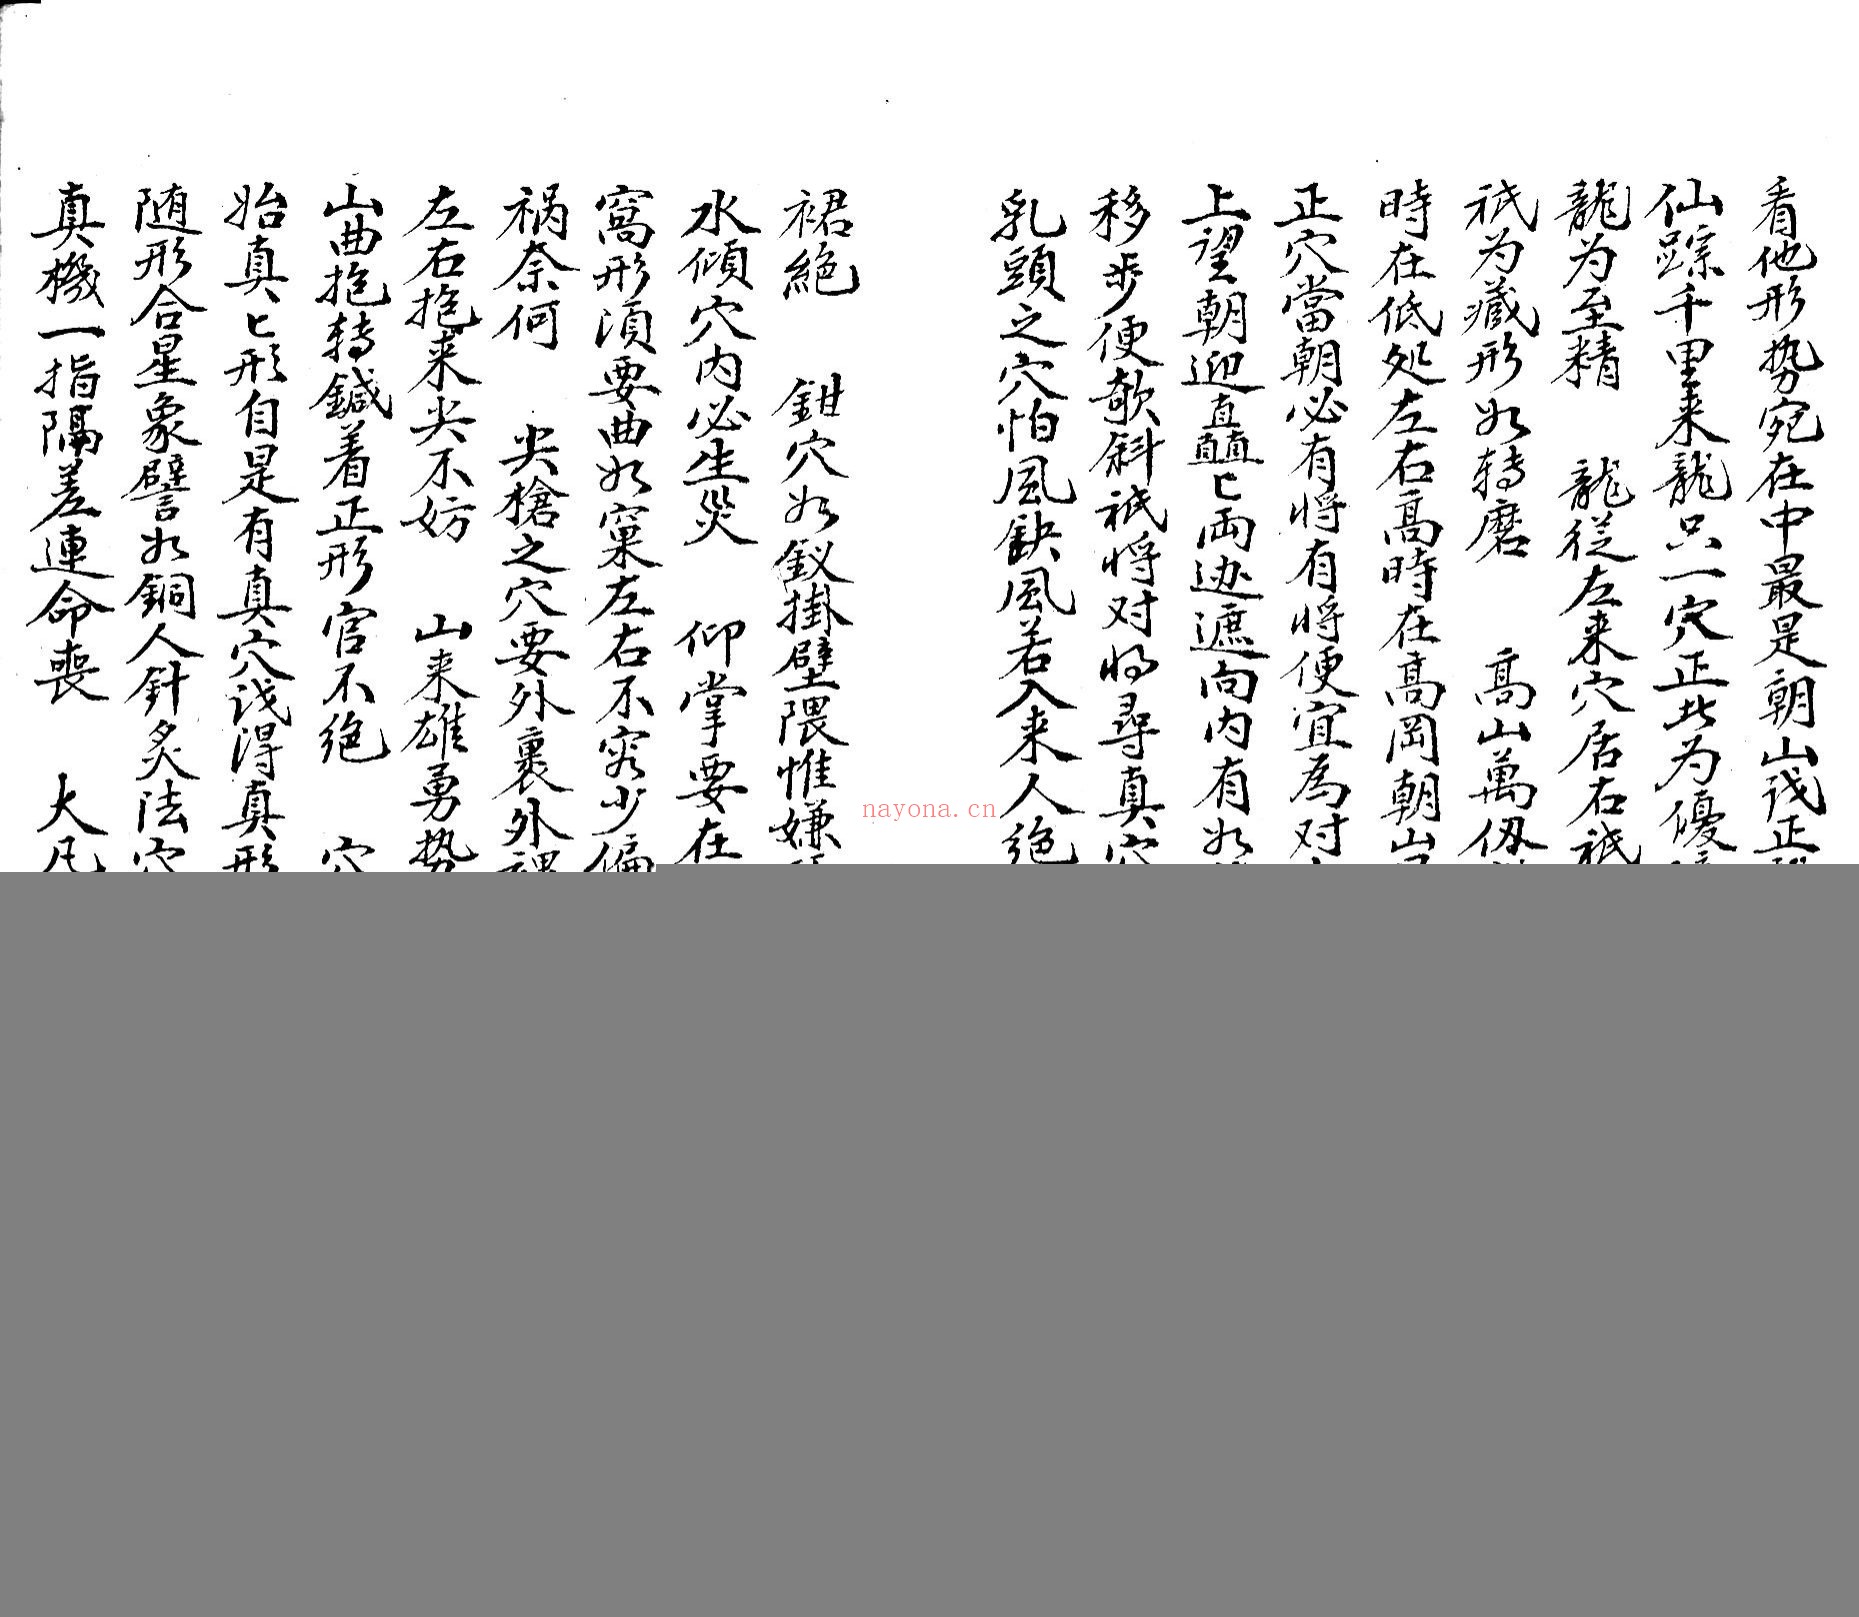 看他形势宛在中最是朝山识正
仙踪千里来龍只一穴正此为優
龍为至精 龍從左来穴居右祇
祇为藏形如转磨 高山萬仞
時在低处左右高時在髙岡朝山
正穴當朝必有将有将便宜為对
上望朝迎直矗〻両边遮向内有如
移步便欹斜祇将对将尋真穴
乳頭之穴怕風缺風若入来人绝
裙絕 鉗穴如釵掛壁隈惟嫌
水傾穴内必生災 仰掌要在
窩形須要曲如窠左右不容少偏
祸奈何 尖槍之穴要外裹外
左右抱来尖不妨 山来雄勇势
山曲抱转鍼着正形官不绝 穴
始真〻形自是有真穴识得真形
随形合星象譬如銅人針炙法穴
真機一指隔差連命喪 大凡
nayona.cn